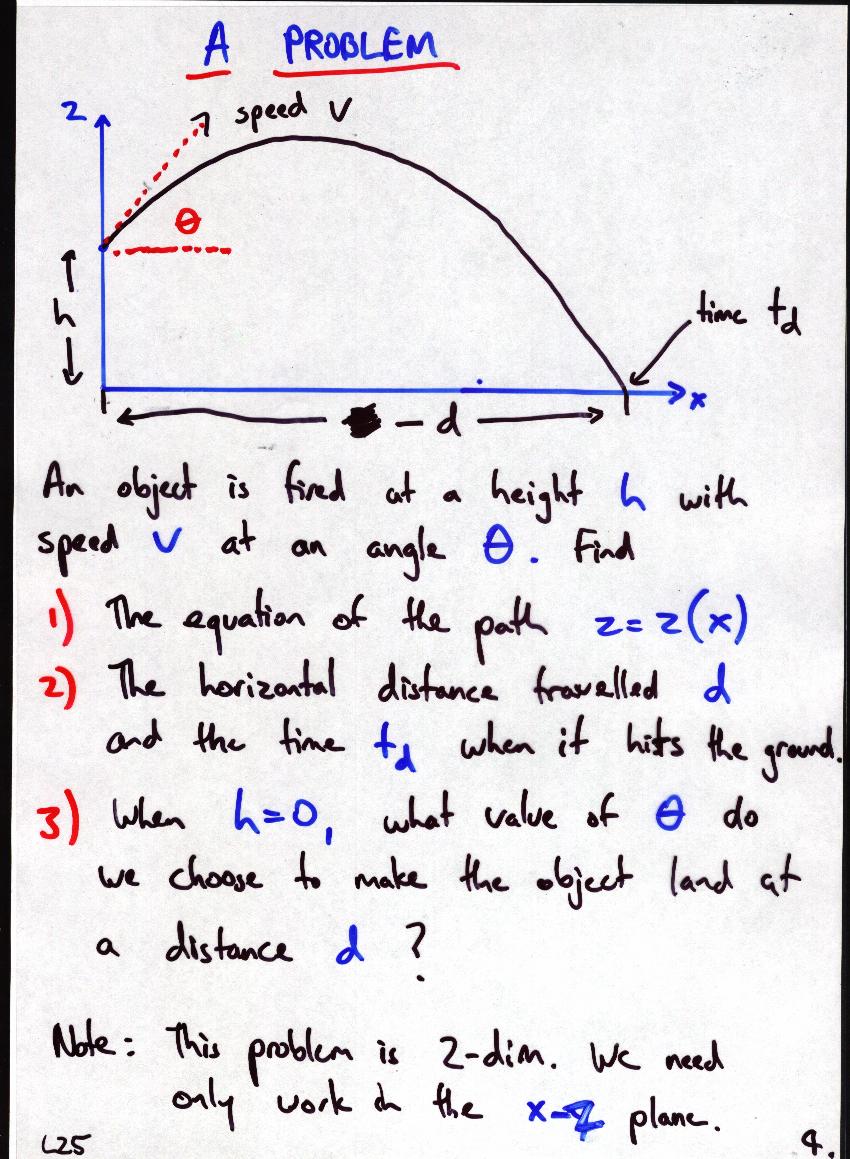 A PROBLEM
z
speed V
θ
h
time t_d
x
- d
An object is fired at a height h with
speed v at an angle θ. Find
1) The equation of the path z = z(x)
2) The horizontal distance travelled d
and the time t_d when it hits the ground.
3) When h=0, what value of θ do
we choose to make the object land at
a distance d ?
Note: This problem is 2-dim. We need
only work in the x-z plane.
L25
4.